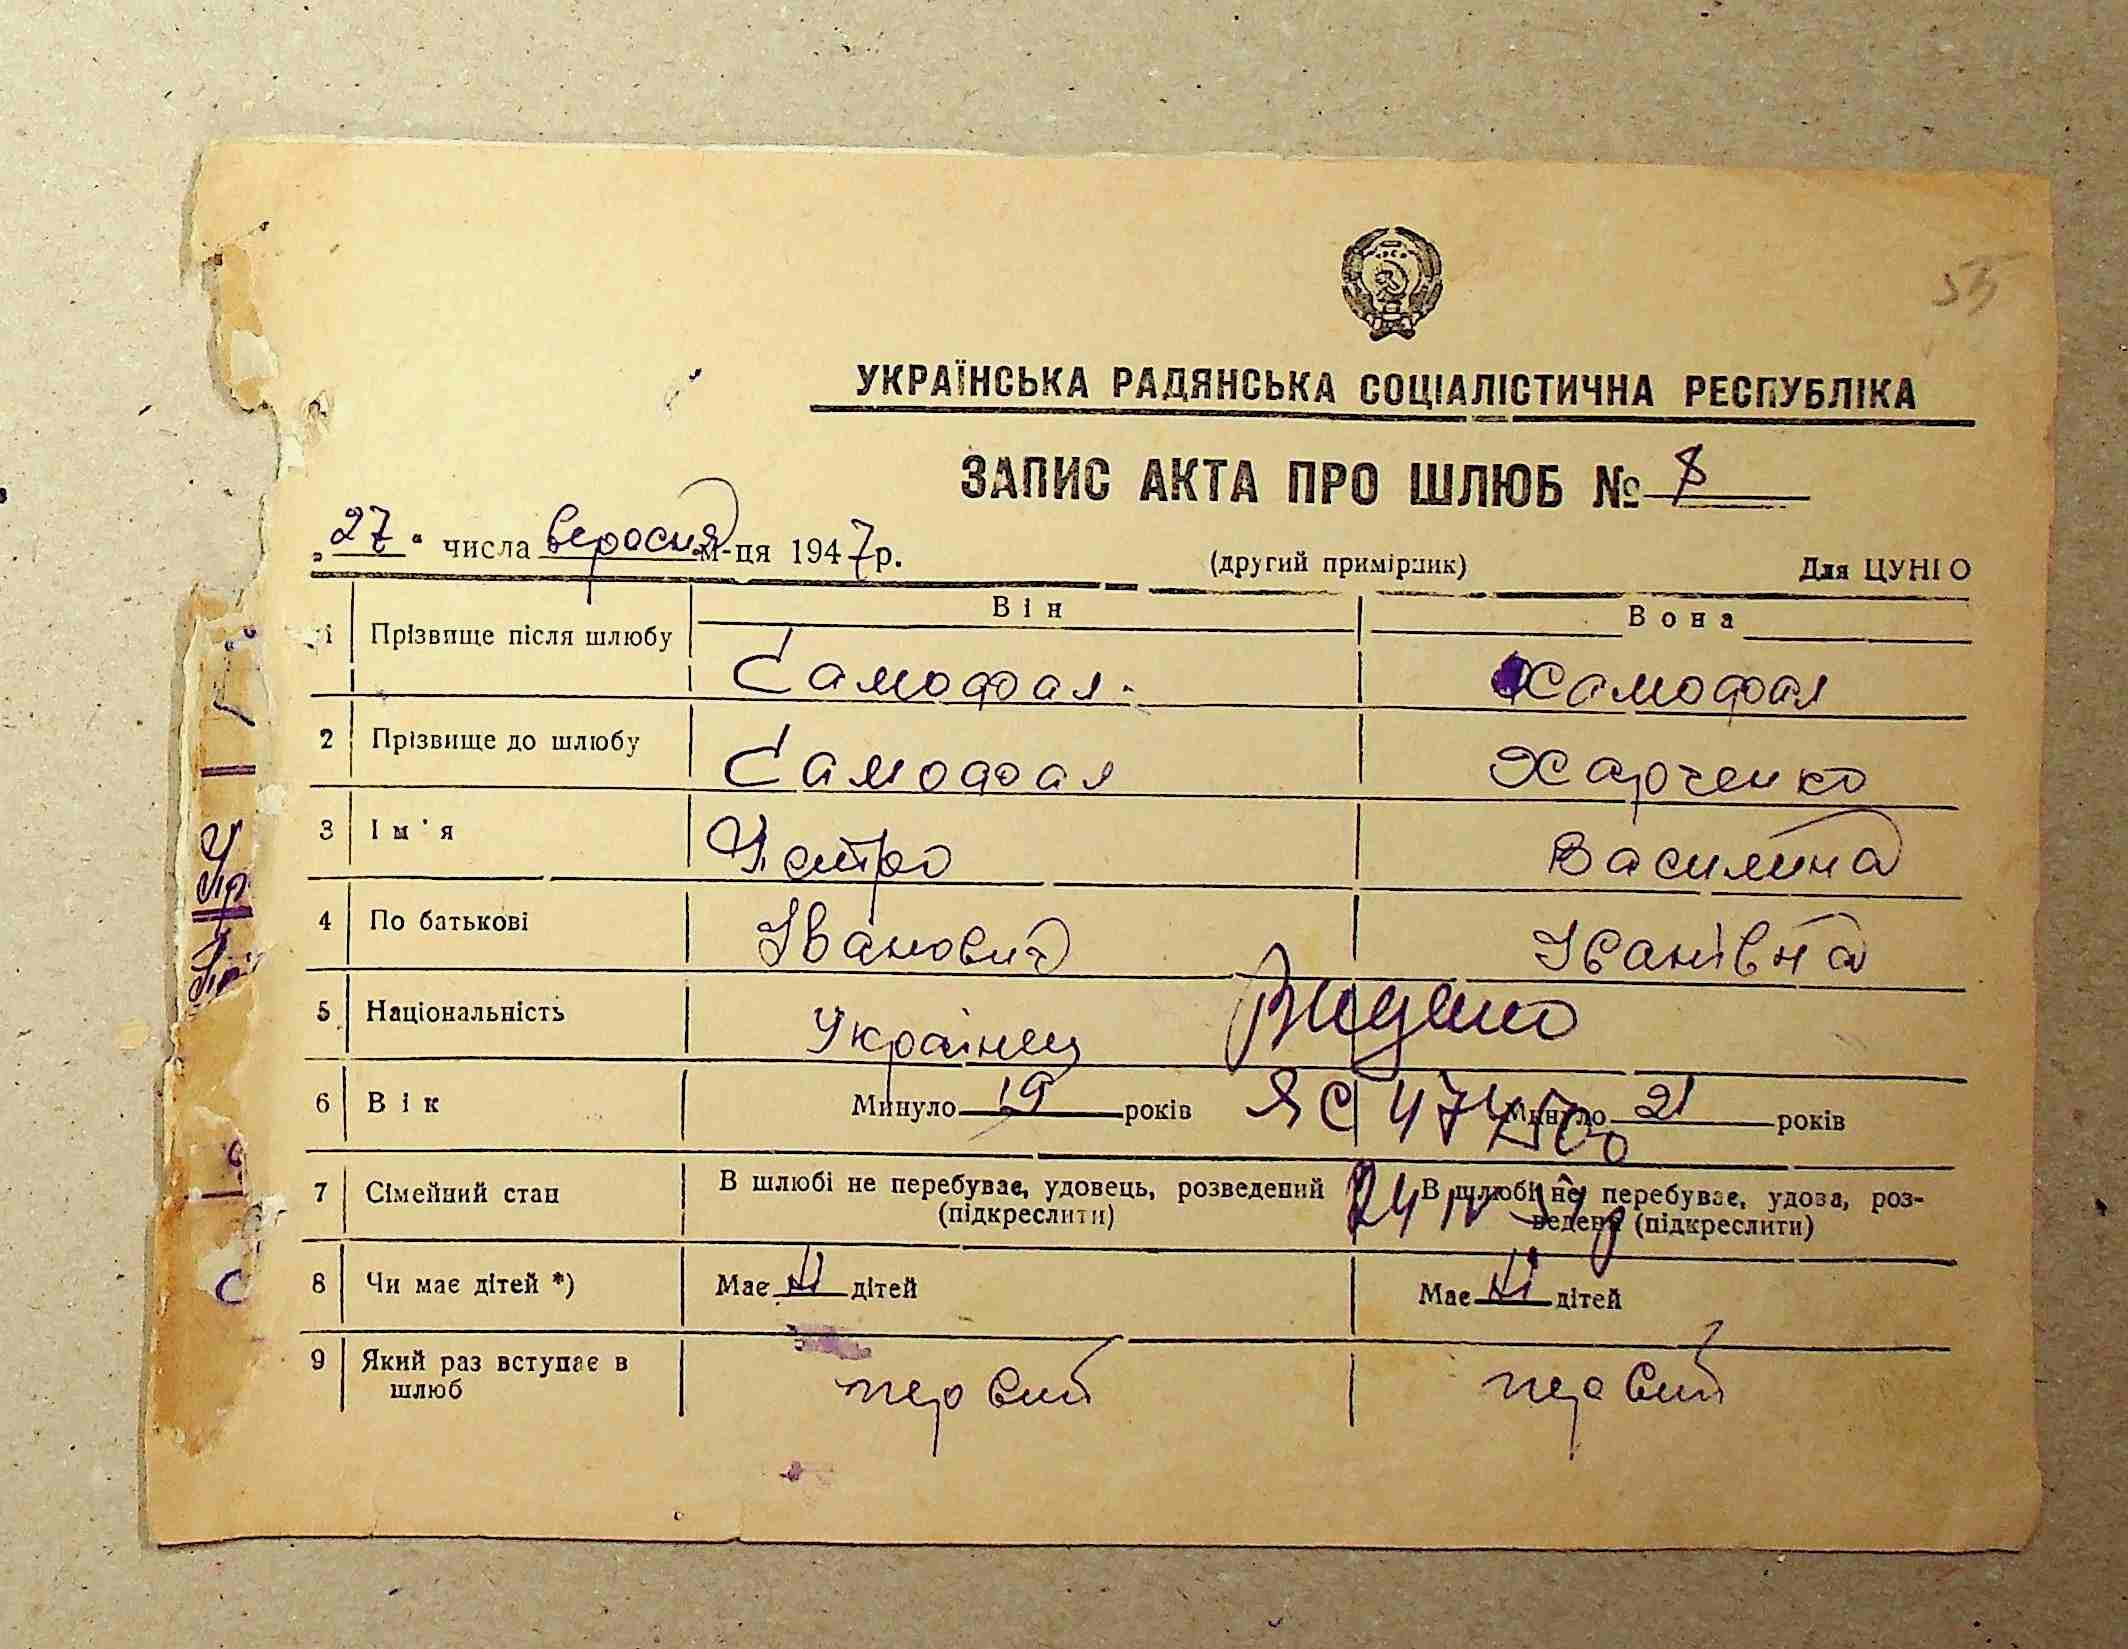 55
УКРАЇНСЬКА РАДЯНСЬКА СОЦІАЛІСТИЧНА РЕСПУБЛІКА
ЗАПИС АКТА ПРО ШЛЮБ № 8
„27“ числа вересня м-ця 1947 р. (другий примірник) Для ЦУНГО
Він Вона
1 Прізвище після шлюбу Самофал Самофал
2 Прізвище до шлюбу Самофал Харченко
3 Ім'я Петро Василина
4 По батькові Іванович Іванівна
5 Національність Українец Видано
6 Вік Минуло 19 років ЯС 47450 Минуло 21 років
7 Сімейний стан В шлюбі не перебуває, удовець, розведений В шлюбі не перебуває, удова, роз-
(підкреслити) ведена (підкреслити)
24 IV
8 Чи має дітей *) Має ні дітей Має ні дітей
9 Який раз вступає в первий первий
шлюб